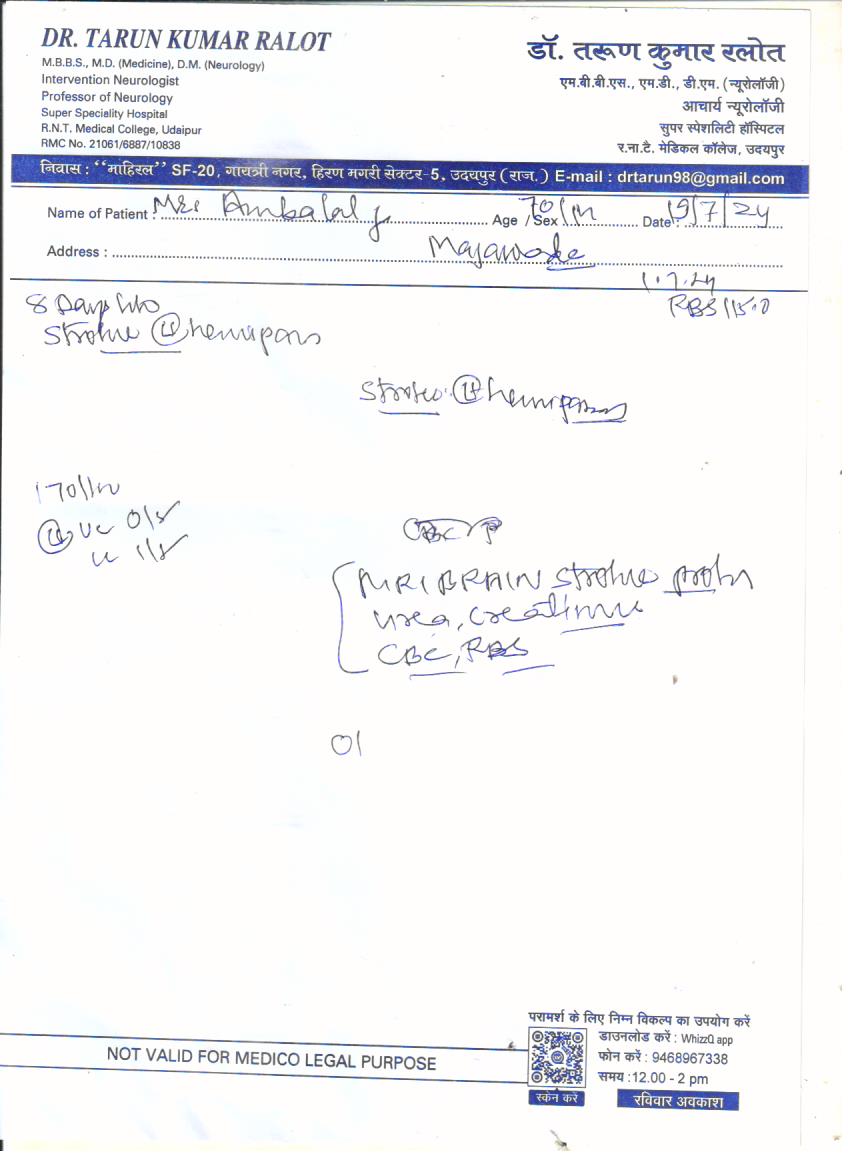 DR. TARUN KUMAR RALOT
M.B.B.S., M.D. (Medicine), D.M. (Neurology)
Intervention Neurologist
Professor of Neurology
Super Speciality Hospital
R.N.T. Medical College, Udaipur
RMC No. 21061/6887/10838
डॉ. तरूण कुमार रलोत
एम.बी.बी.एस., एम.डी., डी.एम. (न्यूरोलॉजी)
आचार्य न्यूरोलॉजी
सुपर स्पेशलिटी हॉस्पिटल
र.ना.टै. मेडिकल कॉलेज, उदयपुर
निवास : “माहिरल” SF-20, गायत्री नगर, हिरण मगरी सेक्टर-5, उदयपुर (राज.) E-mail : drtarun98@gmail.com
Name of Patient : Ambalal Age / Sex 70/M Date : 19/7/24
Address :
1.7.24
RBS 115.0
8 Days
Stroke Lt
Stroke Lt
170/100
MRI BRAIN stroke
urea, creatinine
CBC, RBS
परामर्श के लिए निम्न विकल्प का उपयोग करें
डाउनलोड करें : WhizzQ app
फोन करें : 9468967338
समय :12.00 - 2 pm
स्कैन करें
रविवार अवकाश
NOT VALID FOR MEDICO LEGAL PURPOSE